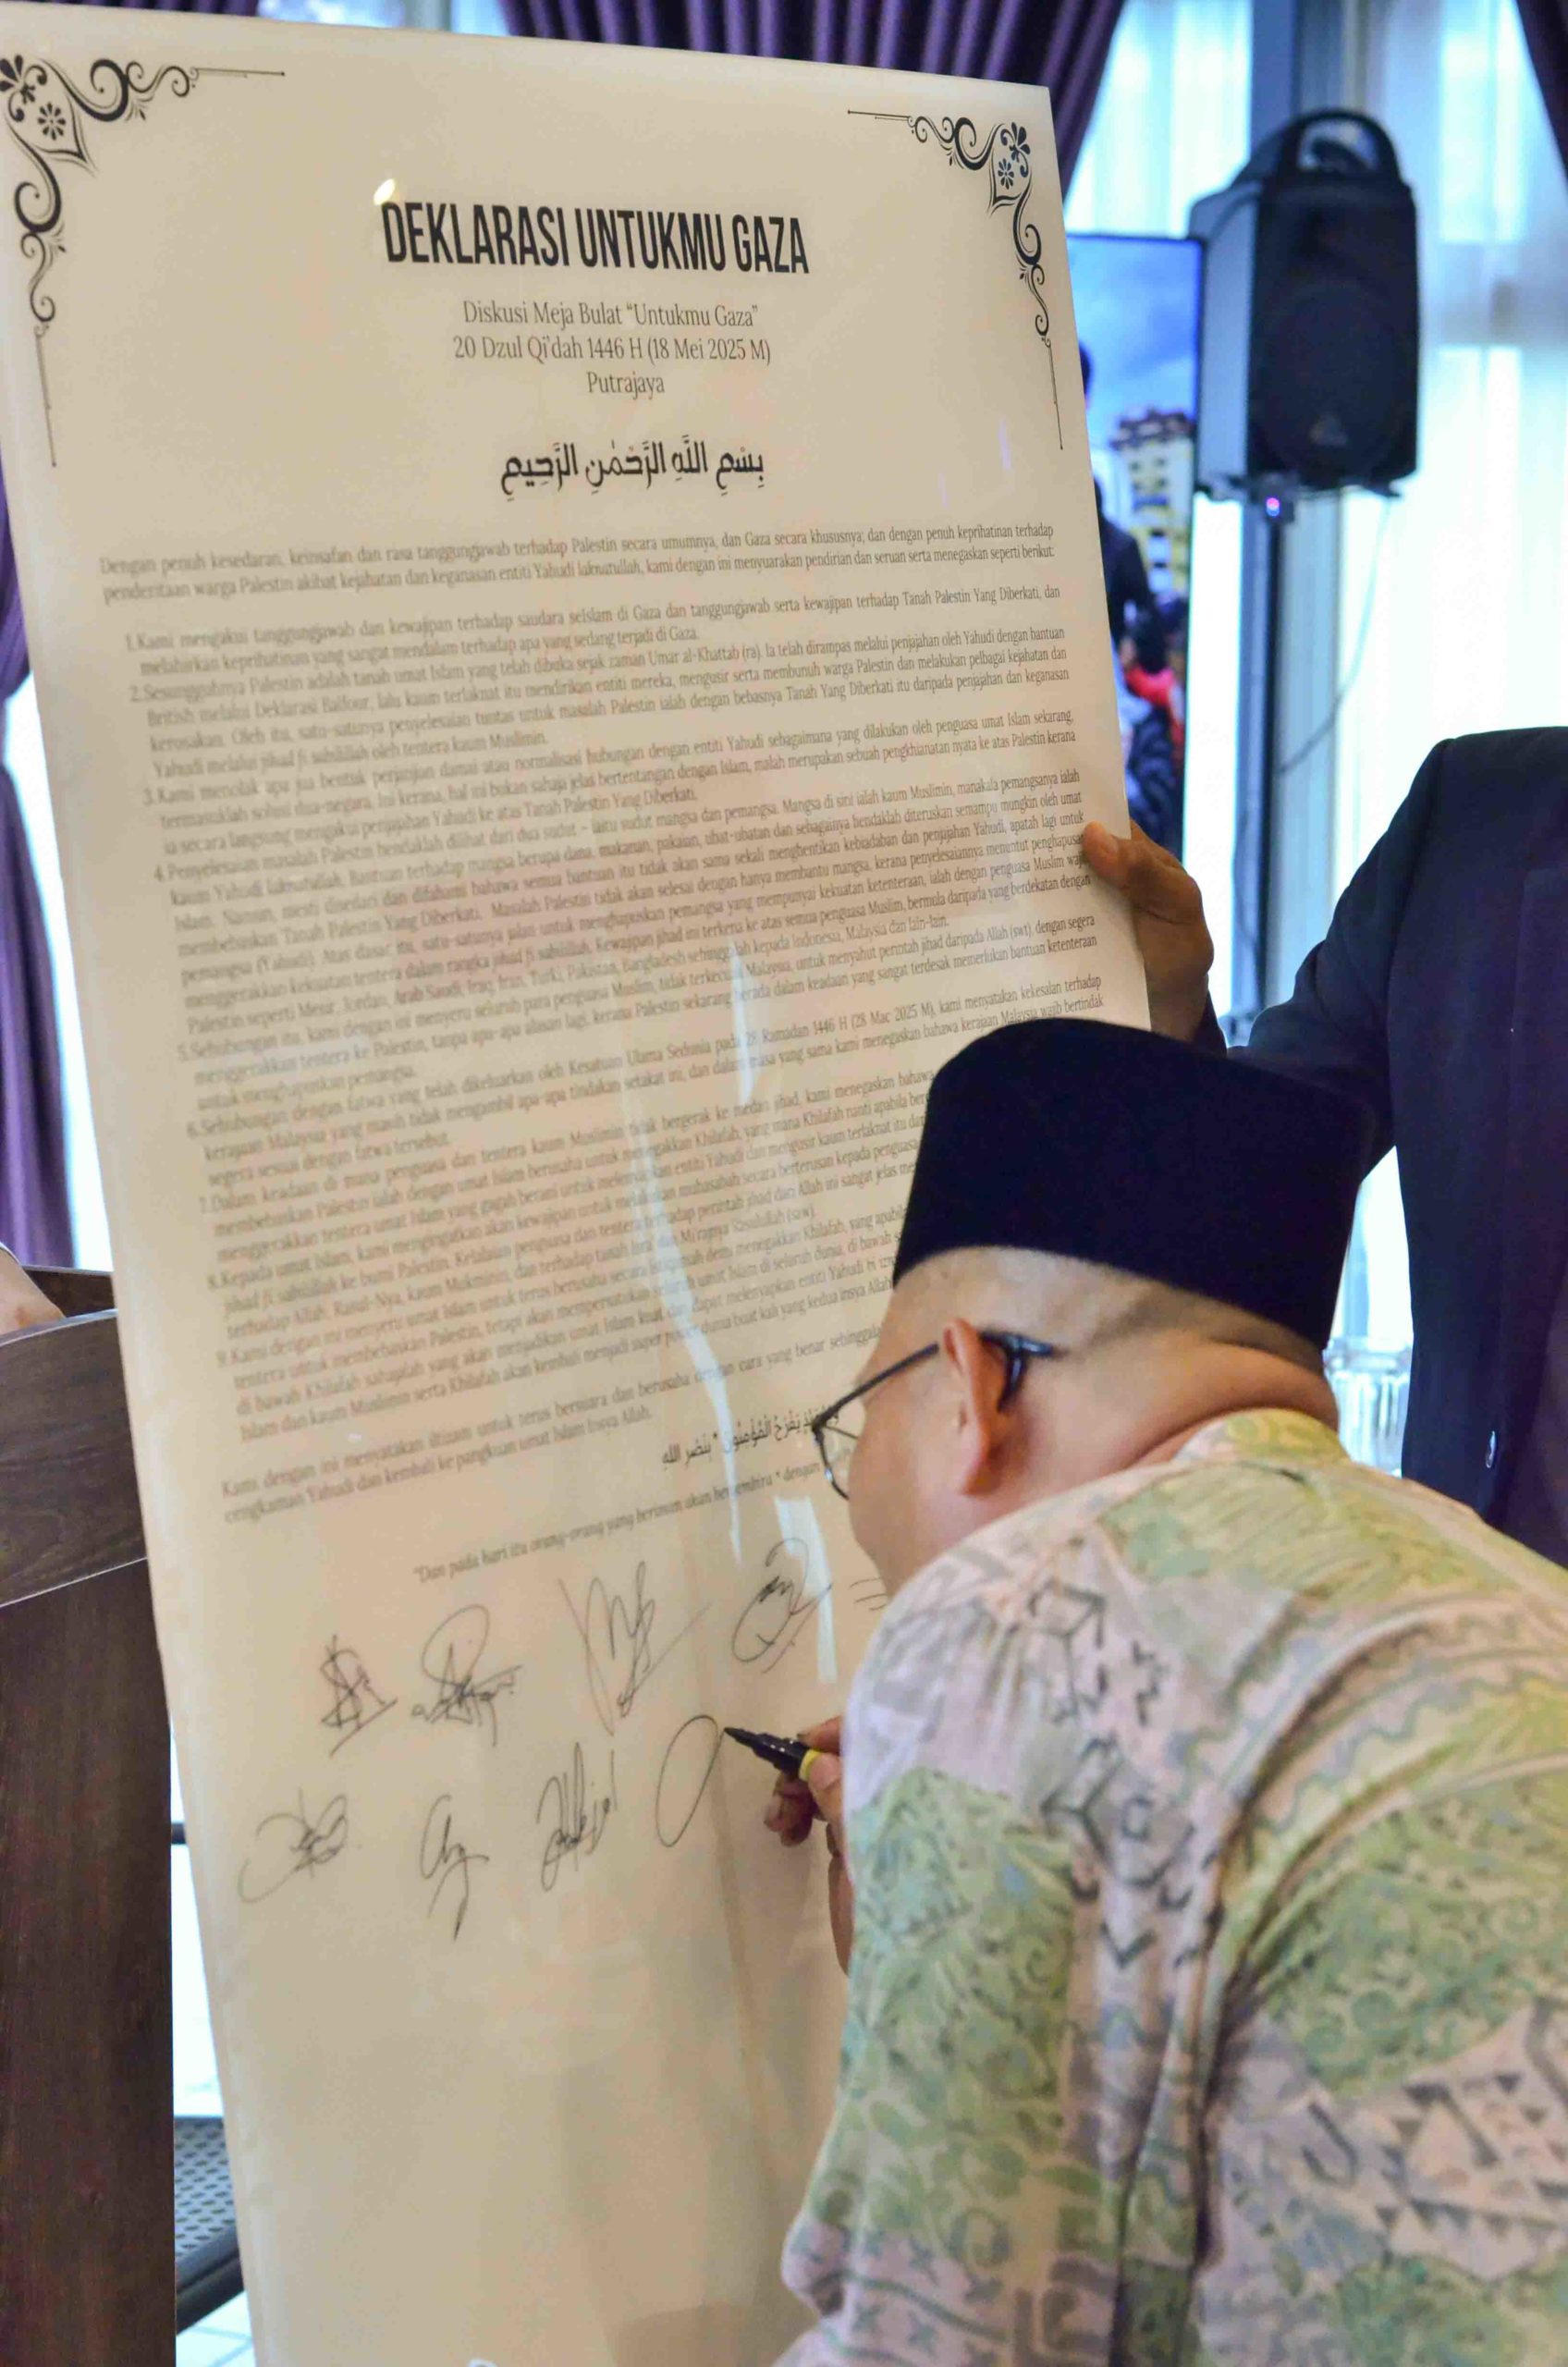 DEKLARASI UNTUKMU GAZA
Diskusi Meja Bulat “Untukmu Gaza”
20 Dzul Qi'dah 1446 H (18 Mei 2025 M)
Putrajaya
بِسْمِ اللَّهِ الرَّحْمَٰنِ الرَّحِيمِ
Dengan penuh kesedaran, keinsafan dan rasa tanggungjawab terhadap Palestin secara umumnya, dan Gaza secara khususnya; dan dengan penuh keprihatinan terhadap
penderitaan warga Palestin akibat kejahatan dan keganasan entiti Yahudi laknatullah, kami dengan ini menyuarakan pendirian dan seruan serta menegaskan seperti berikut:
1.Kami mengakui tanggungjawab dan kewajipan terhadap saudara seIslam di Gaza dan tanggungjawab serta kewajipan terhadap Tanah Palestin Yang Diberkati, dan
melahirkan keprihatinan yang sangat mendalam terhadap apa yang sedang terjadi di Gaza.
2.Sesungguhnya Palestin adalah tanah umat Islam yang telah dibuka sejak zaman Umar al-Khattab (ra). Ia telah dirampas melalui penjajahan oleh Yahudi dengan bantuan
British melalui Deklarasi Balfour, lalu kaum terlaknat itu mendirikan entiti mereka, mengusir serta membunuh warga Palestin dan melakukan pelbagai kejahatan dan
kerosakan. Oleh itu, satu-satunya penyelesaian tuntas untuk masalah Palestin ialah dengan bebasnya Tanah Yang Diberkati itu daripada penjajahan dan keganasan
Yahudi melalui jihad fi sabilillah oleh tentera kaum Muslimin.
3.Kami menolak apa jua bentuk perjanjian damai atau normalisasi hubungan dengan entiti Yahudi sebagaimana yang dilakukan oleh penguasa umat Islam sekarang,
termasuklah solusi dua-negara. Ini kerana, hal ini bukan sahaja jelas bertentangan dengan Islam, malah merupakan sebuah pengkhianatan nyata ke atas Palestin kerana
ia secara langsung mengakui penjajahan Yahudi ke atas Tanah Palestin Yang Diberkati.
4.Penyelesaian masalah Palestin hendaklah dilihat dari dua sudut – iaitu sudut mangsa dan pemangsa. Mangsa di sini ialah kaum Muslimin, manakala pemangsanya ialah
kaum Yahudi laknatullah. Bantuan terhadap mangsa berupa dana, makanan, pakaian, ubat-ubatan dan sebagainya hendaklah diteruskan semampu mungkin oleh umat
Islam. Namun, mesti disedari dan difahami bahawa semua bantuan itu tidak akan sama sekali menghentikan kebiadaban dan penjajahan Yahudi, apatah lagi untuk
membebaskan Tanah Palestin Yang Diberkati. Masalah Palestin tidak akan selesai dengan hanya membantu mangsa, kerana penyelesaiannya menuntut penghapusan
pemangsa (Yahudi). Atas dasar itu, satu-satunya jalan untuk menghapuskan pemangsa yang mempunyai kekuatan ketenteraan, ialah dengan penguasa Muslim
menggerakkan kekuatan tentera dalam rangka jihad fi sabilillah. Kewajipan jihad ini terkena ke atas semua penguasa Muslim, bermula daripada yang berdekatan dengan
Palestin seperti Mesir, Jordan, Arab Saudi, Iraq, Iran, Turki, Pakistan, Bangladesh sehinggalah kepada Indonesia, Malaysia dan lain-lain.
5.Sehubungan itu, kami dengan ini menyeru seluruh para penguasa Muslim, tidak terkecuali Malaysia, untuk menyahut perintah jihad daripada Allah (swt), dengan segera
menggerakkan tentera ke Palestin, tanpa apa-apa alasan lagi, kerana Palestin sekarang berada dalam keadaan yang sangat terdesak memerlukan bantuan ketenteraan
untuk menghapuskan pemangsa.
6.Sehubungan dengan fatwa yang telah dikeluarkan oleh Kesatuan Ulama Sedunia pada 28 Ramadan 1446 H (28 Mac 2025 M), kami menyatakan kekesalan terhadap
kerajaan Malaysia yang masih tidak mengambil apa-apa tindakan setakat ini, dan dalam masa yang sama kami menegaskan bahawa kerajaan Malaysia wajib bertindak
segera sesuai dengan fatwa tersebut.
7.Dalam keadaan di mana penguasa dan tentera kaum Muslimin tidak bergerak ke medan jihad, kami menegaskan bahawa
membebaskan Palestin ialah dengan umat Islam berusaha untuk menegakkan Khilafah, yang mana Khilafah nanti apabila
menggerakkan tentera umat Islam yang gagah berani untuk melenyapkan entiti Yahudi dan mengusir kaum terlaknat itu
8.Kepada umat Islam, kami mengingatkan akan kewajipan untuk melakukan muhasabah secara berterusan kepada penguasa
jihad fi sabilillah ke bumi Palestin. Kelalaian penguasa dan tentera terhadap perintah jihad dari Allah ini sangat jelas
terhadap Allah, Rasul-Nya, kaum Mukminin, dan terhadap tanah Isra' dan Mi'rajnya Rasulullah (saw).
9.Kami dengan ini menyeru umat Islam untuk terus berusaha secara istiqamah demi menegakkan Khilafah, yang
tentera untuk membebaskan Palestin, tetapi akan mempersatukan seluruh umat Islam di seluruh dunia, di bawah
di bawah Khilafah satujalah yang akan menjadikan umat Islam kuat dan dapat melenyapkan entiti Yahudi
Islam dan kaum Muslimin serta Khilafah akan kembali menjadi super power dunia buat kali yang kedua insya Allah
Kami dengan ini menyatakan iltizam untuk terus bersuara dan berusaha dengan cara yang benar
cengkaman Yahudi dan kembali ke pangkuan umat Islam Insya Allah.
يَفْرَحُ الْمُؤْمِنُونَ * بِنَصْرِ اللهِ
"Dan pada hari itu orang-orang yang beriman akan bergembira * dengan